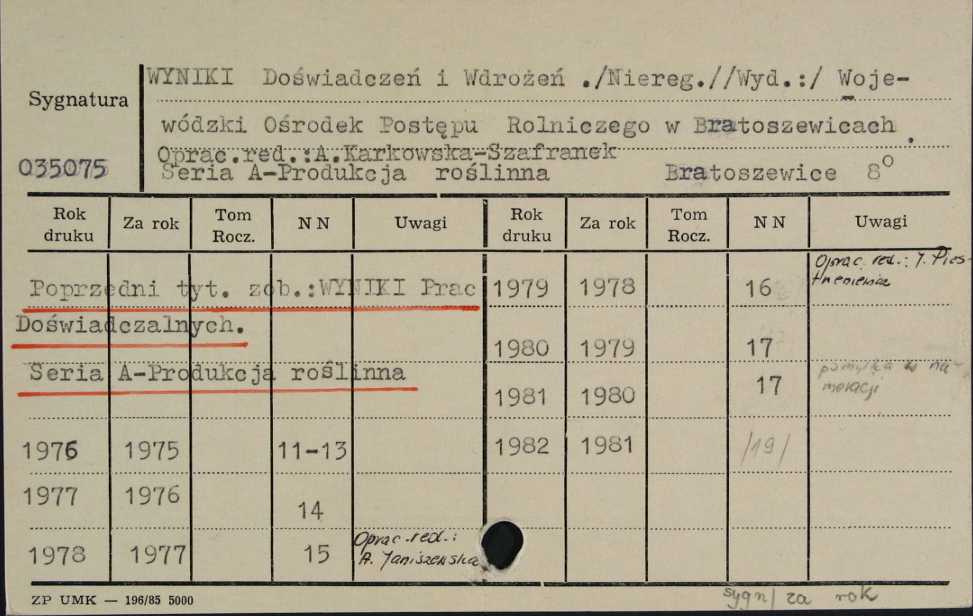 WYNIKI Doświadczeń i Wdrożeń ./Niereg.//Wyd.:/ Woje-
Sygnatura
wódzki Ośrodek Postępu Rolniczego w Bratoszewicach.
Oprac.red.:A.Karkowska-Szafranek
035075 Seria A-Produkcja roślinna Bratoszewice 8°
Rok druku Za rok Tom Rocz. N N Uwagi Rok druku Za rok Tom Rocz. N N Uwagi
Poprzedni tyt. zob.:WYNIKI Prac
Doświadczalnych.
Seria A-Produkcja roślinna
1976 1975 11-13
1977 1976 14
1978 1977 15 Oprac.red.:
A. Janiszewska
1979 1978 16 Oprac. red.: J. 
1980 1979 17
1981 1980 17 pomyłka w nu-
meracji
1982 1981 /19/
ZP UMK — 196/85 5000
sygn/ za rok